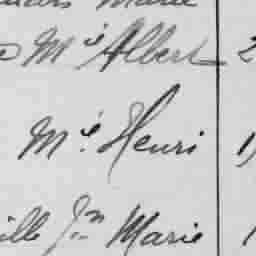 Marie
Mie Albert 2
Mie Henri 1
ille Jn Marie 1